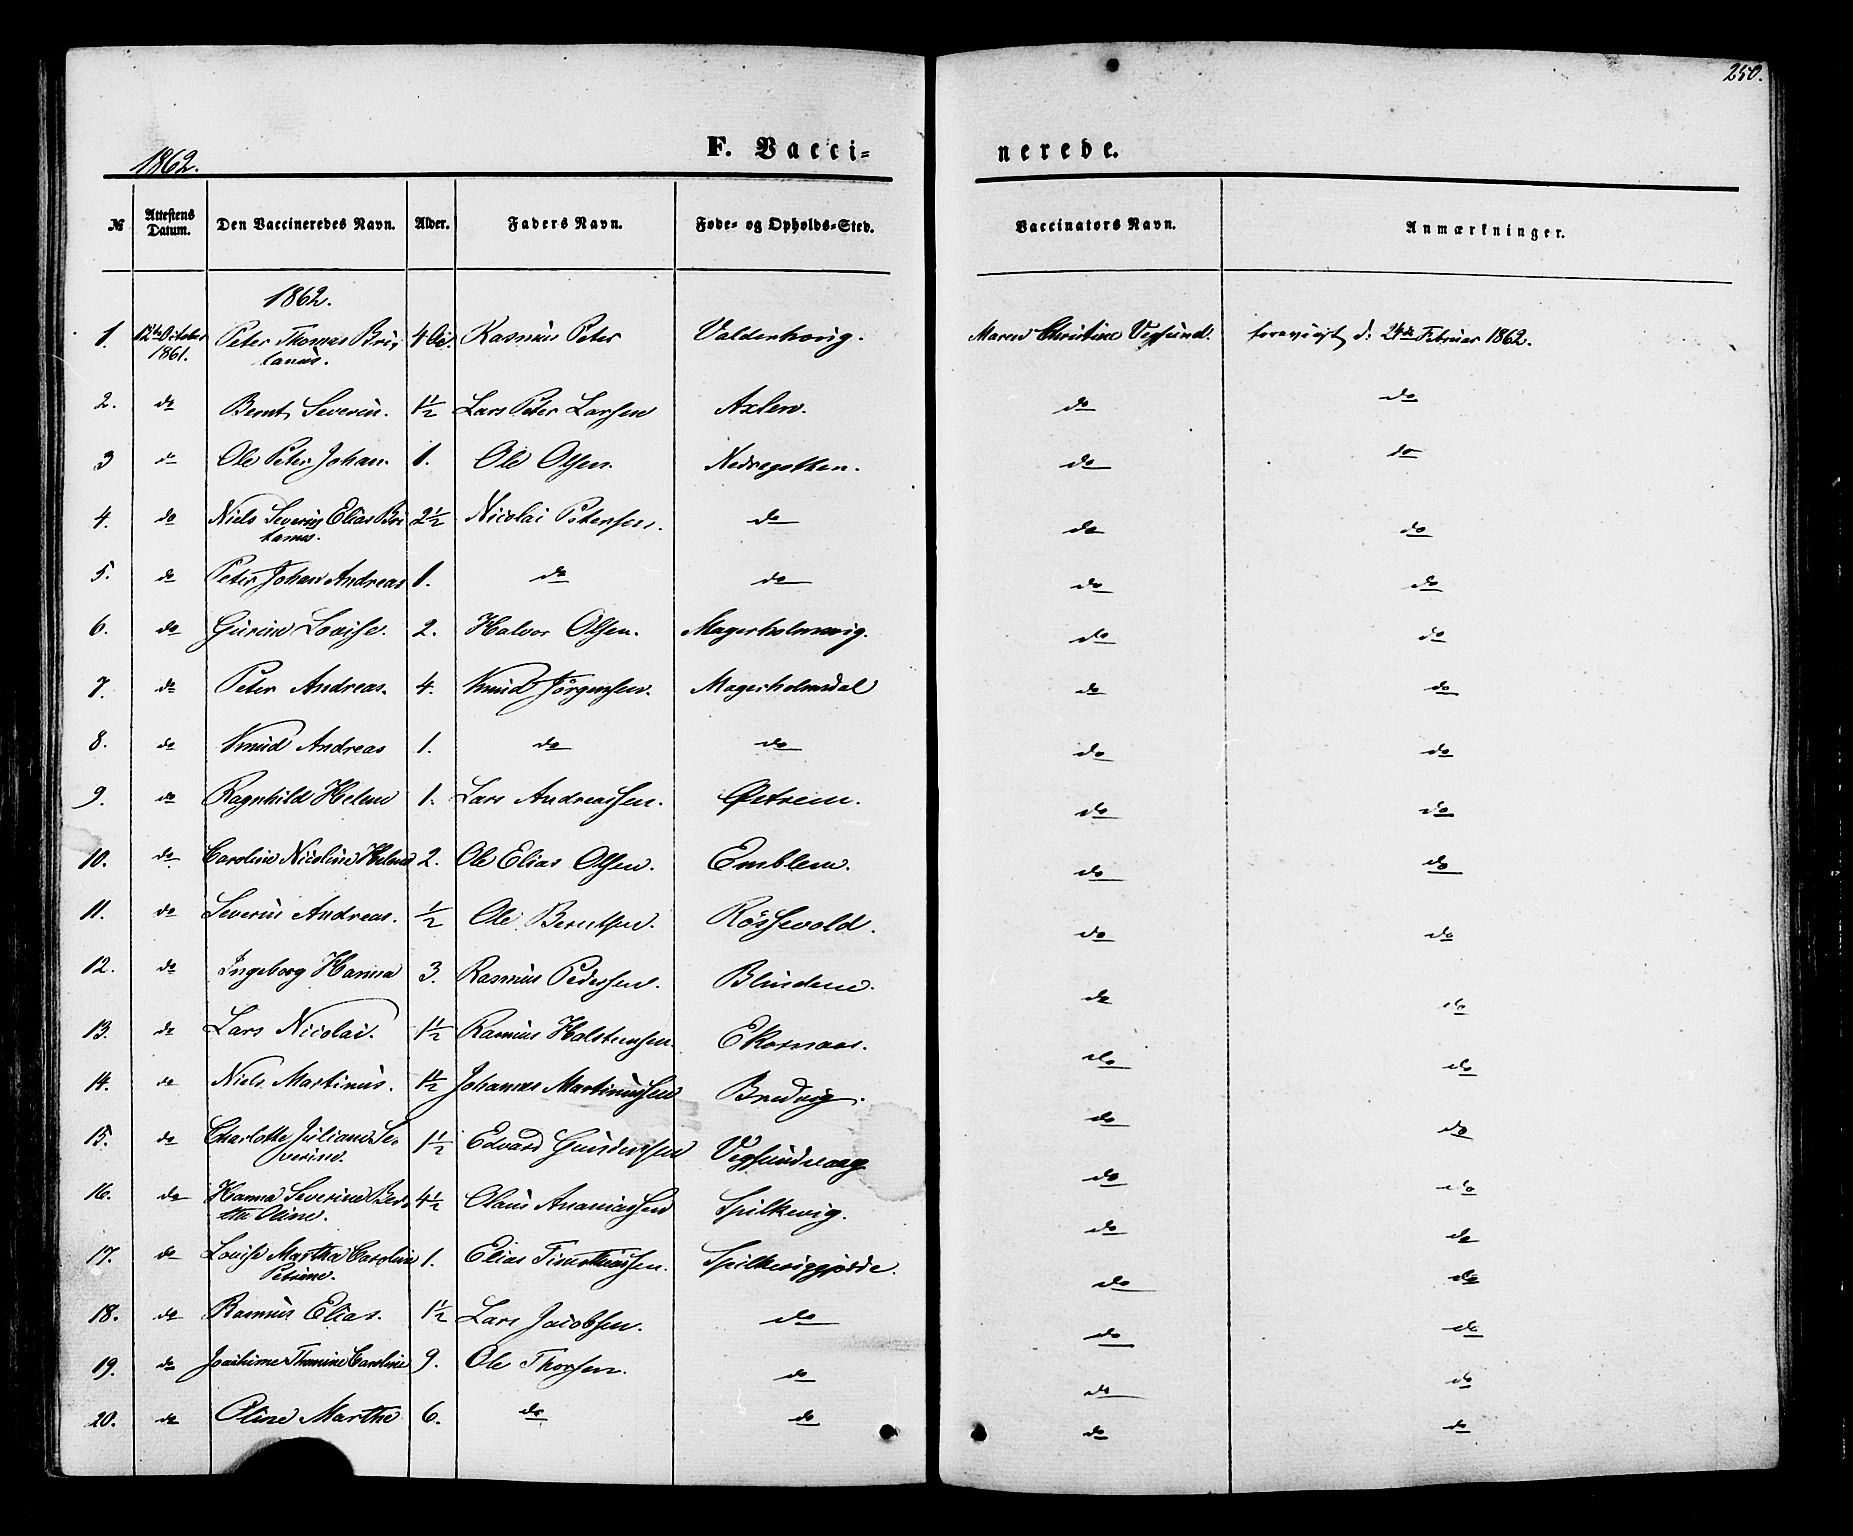 250.
1862.
F. Vacci-
nerede.
№ Attestens Datum. Den Vaccineredes Navn. Alder. Faders Navn. Føde- og Opholds-Sted. Vaccinators Navn. Anmærkninger.
1862.
1. 12te October 1861. Peter Thomas Bri- 4 Rasmus Peter Valderhoug. Maren Christine Vegsund. forevist d: 24de Februar 1862.
tanus.
2. do Bernt Severin. 1½ Lars Peter Larsen Axlen. do do
3 do Ole Peter Johan. 1. Ole Olsen. Nedregotten. do do
4. do Niels Severin Elias Bri 2½ Nicolai Petersen. do do do
tanus.
5. do Peter Johan Andreas 1. do do do do
6. do Gurine Lovise. 2. Halvor Olsen. Magerholmvig. do do
7. do Peter Andreas. 4. Knud Jørgensen. Magerholmdal do do
8. do Knud Andreas 1. do do do do
9. do Ragnhild Helene 1. Lars Andreassen. Østrem. do do
10. do Caroline Nicoline Helene 2. Ole Elias Olsen. Emblem. do do
11. do Severin Andreas. ½ Ole Berntsen. Røssevold. do do
12. do Ingeborg Hanna 3. Rasmus Pedersen. Blindem. do do
13. do Lars Nicolai. 1½ Rasmus Halstensen. Ekornaas. do do
14. do Niels Martinus. 1½ Johannes Martinussen Bredvig. do do
15. do Charlotte Juliane Se- 1½ Edvard Gundersen Vegsundvaag do do
verine.
16. do Hanna Severine Ber- 4½ Olaus Ananiassen Spilkevig. do do
the Oline.
17. do Lovise Martha Caroline 1. Elias Timotheussen. Spilkeviggjerde. do do
Petrine.
18. do Rasmus Elias. 1½ Lars Jacobsen. do do do
19. do Joachime Thomine Caroline 9. Ole Thorsen. do do do
20. do Oline Marthe 6. do do do do